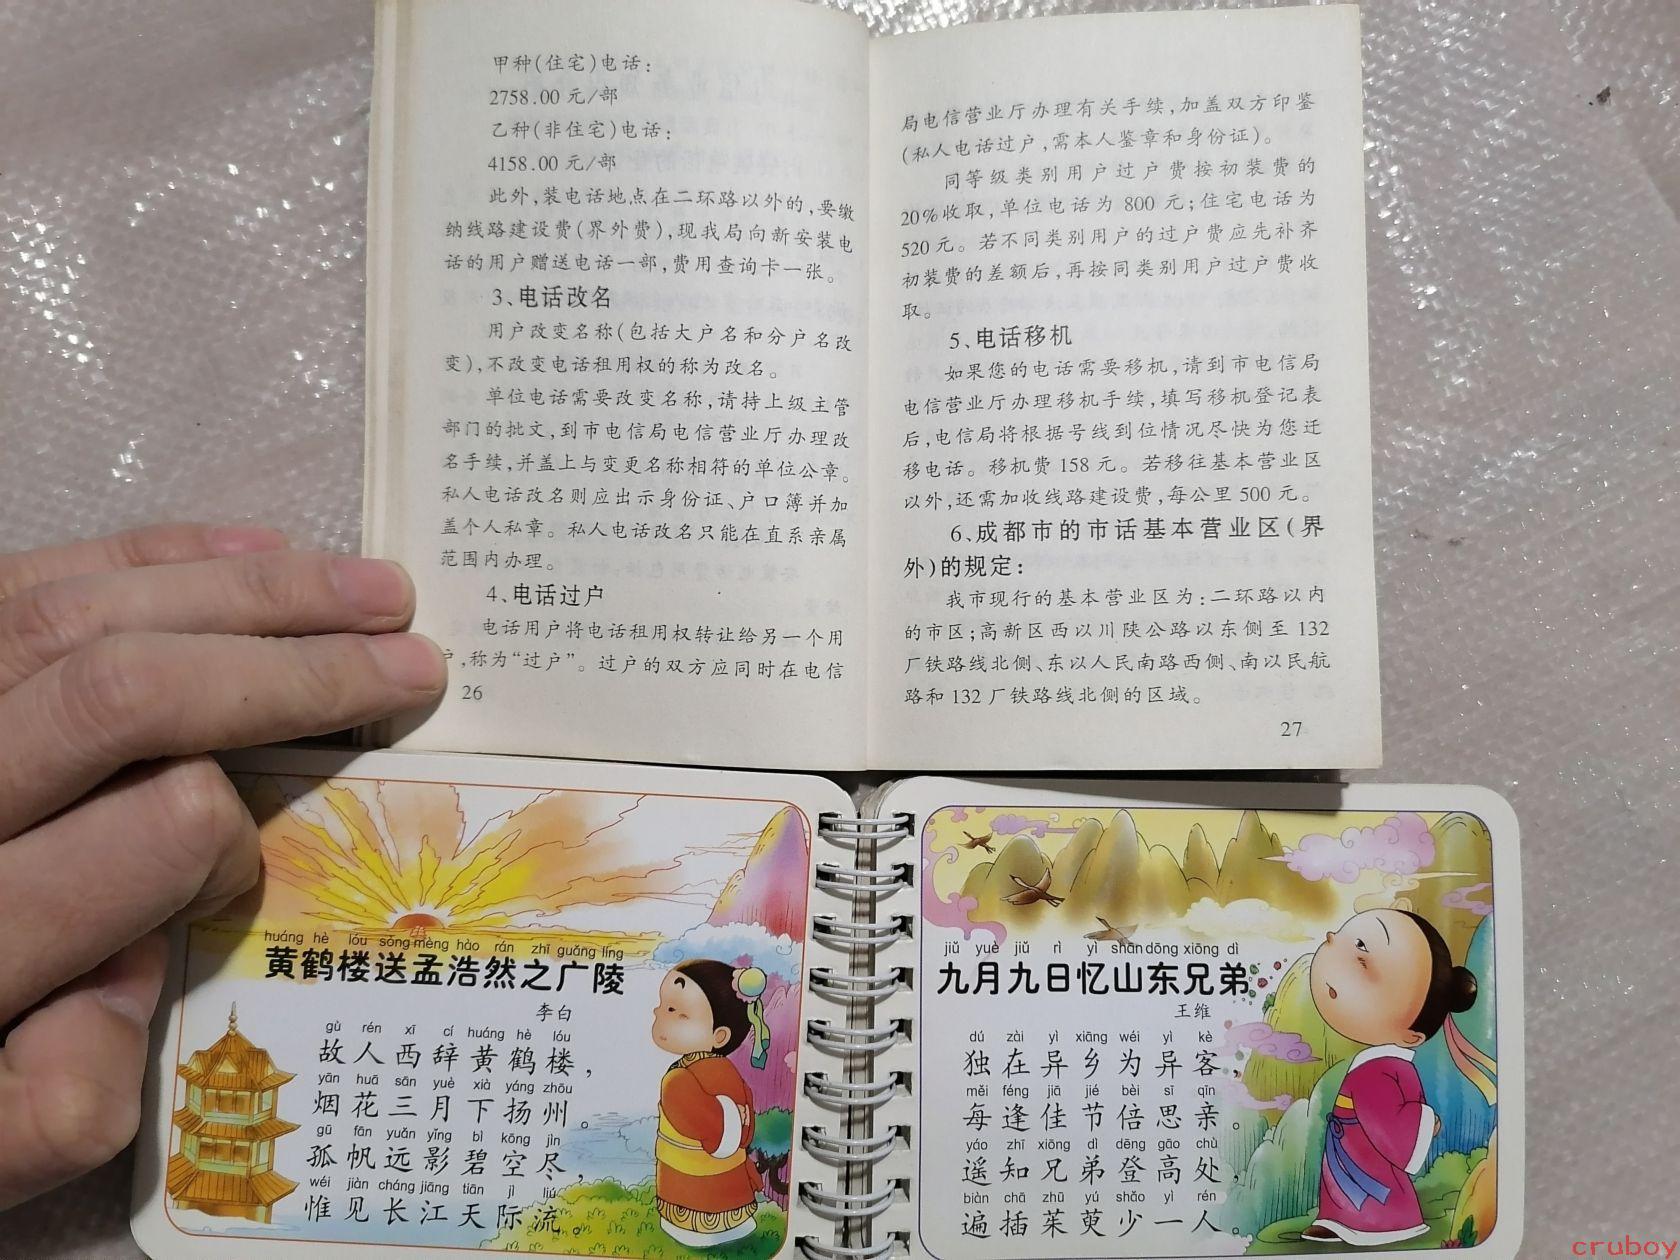 甲种(住宅)电话:
2758.00 元/部
乙种(非住宅)电话:
4158.00 元/部
此外,装电话地点在二环路以外的,要缴
纳线路建设费(界外费),现我局向新安装电
话的用户赠送电话一部,费用查询卡一张。
3、电话改名
用户改变名称(包括大户名和分户名改
变),不改变电话租用权的称为改名。
单位电话需要改变名称,请持上级主管
部门的批文,到市电信局电信营业厅办理改
名手续,并盖上与变更名称相符的单位公章。
私人电话改名则应出示身份证、户口簿并加
盖个人私章。私人电话改名只能在直系亲属
范围内办理。
4、电话过户
电话用户将电话租用权转让给另一个用
户,称为“过户”。过户的双方应同时在电信
26
局电信营业厅办理有关手续,加盖双方印鉴
(私人电话过户,需本人鉴章和身份证)。
同等级类别用户过户费按初装费的
20%收取,单位电话为 800 元;住宅电话为
520 元。若不同类别用户的过户费应先补齐
初装费的差额后,再按同类别用户过户费收
取。
5、电话移机
如果您的电话需要移机,请到市电信局
电信营业厅办理移机手续,填写移机登记表
后,电信局将根据号线到位情况尽快为您迁
移电话。移机费 158 元。若移往基本营业区
以外,还需加收线路建设费,每公里 500 元。
6、成都市的市话基本营业区(界
外)的规定:
我市现行的基本营业区为:二环路以内
的市区;高新区西以川陕公路以东侧至 132
厂铁路线北侧、东以人民南路西侧、南以民航
路和 132 厂铁路线北侧的区域。
27
huáng hè lóu sòng mèng hào rán zhī guǎng líng
黄鹤楼送孟浩然之广陵
李白
gù rén xī cí huáng hè lóu
故人西辞黄鹤楼,
yān huā sān yuè xià yáng zhōu
烟花三月下扬州。
gū fān yuǎn yǐng bì kōng jìn
孤帆远影碧空尽,
wéi jiàn cháng jiāng tiān jì liú
惟见长江天际流。
jiǔ yuè jiǔ rì yì shān dōng xiōng dì
九月九日忆山东兄弟
王维
dú zài yì xiāng wéi yì kè
独在异乡为异客,
měi féng jiā jié bèi sī qīn
每逢佳节倍思亲。
yáo zhī xiōng dì dēng gāo chù
遥知兄弟登高处,
biàn chā zhū yú shǎo yì rén
遍插茱萸少一人。
cruboy